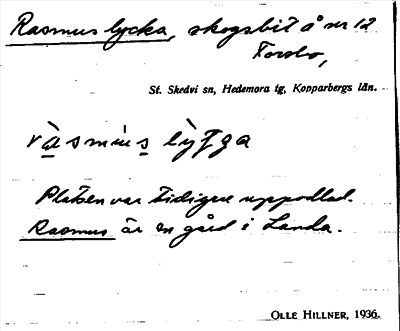 Rasmus lycka, skogsbit å nr 12
Forsbo,
St. Skedvi sn, Hedemora tg, Kopparbergs län.
Platsen var tidigare uppodlad.
Rasmus är en gård i Landa.
OLLE HILLNER, 1936.